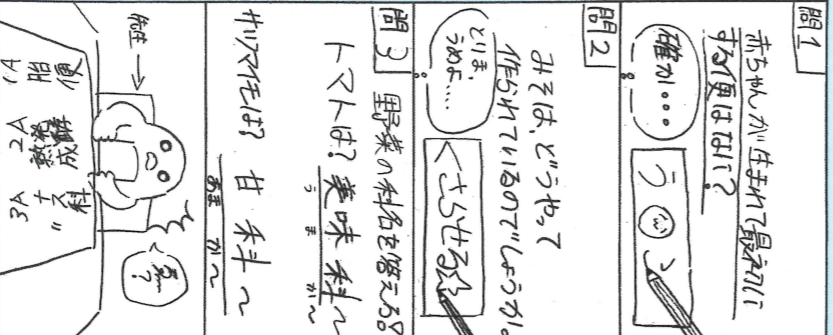 問1
赤ちゃんが生まれて最初に
する便はなに?
確か・・・
う こ
問2
みそは、どうやって
作られているのでしょうか。
とりま、
うめよ....
くさらせる☆
問3 野菜の科名を答えろ!
トマトは? 美味科〜
うまか〜
サツマイモは? 甘科〜
あまか〜
先生→
1A 胎便
2A 発酵
熟成
3A ナス科
〃